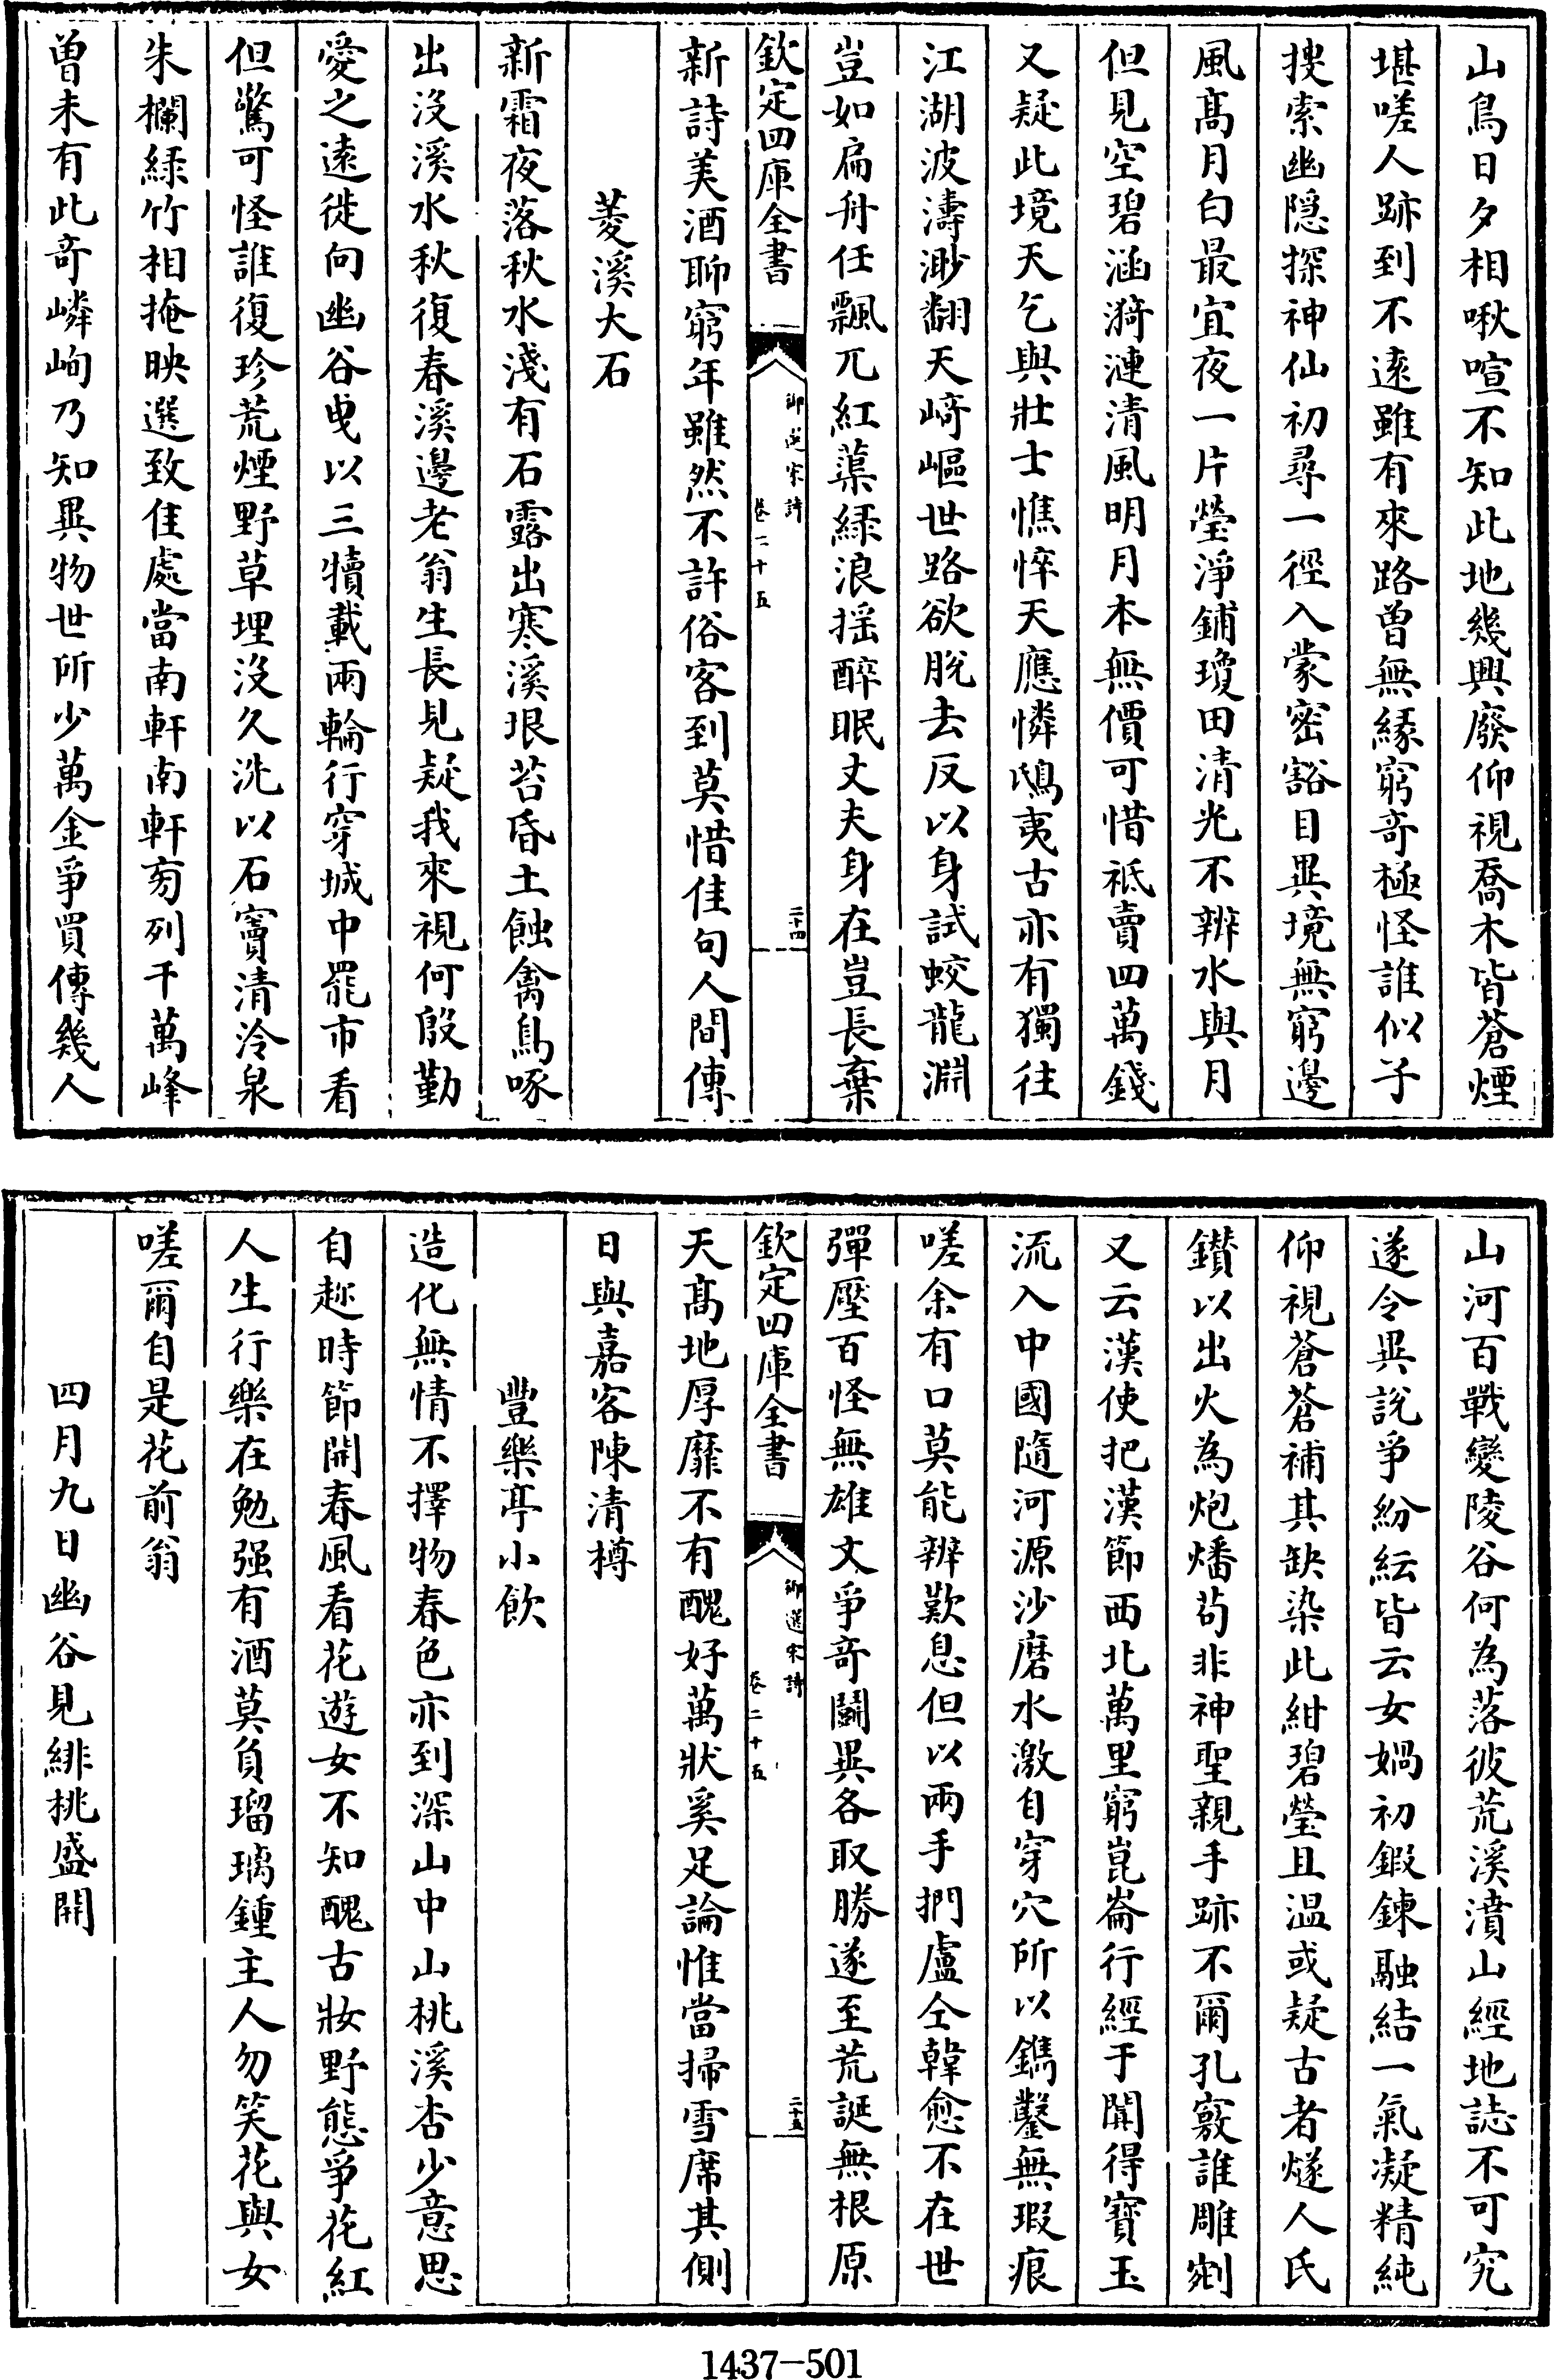 山鳥日夕相啾喧不知此地幾興廢仰視喬木皆蒼煙
堪嗟人跡到不遠雖有來路曽無緣窮竒極怪誰似子
搜索幽隠探神仙初尋一徑入蒙宻豁目異境無窮邊
風髙月白最宜夜一片瑩淨鋪瓊田清光不辨水與月
但見空碧涵漪漣清風明月本無價可惜秪賣四萬錢
又疑此境天乞與壯士憔悴天應憐鴟夷古亦有獨往
江湖波濤渺翻天崎嶇世路欲脫去反以身試蛟龍淵
豈如扁舟任飄兀紅蕖緑浪揺醉眠丈夫身在豈長棄
新詩美酒聊窮年雖然不許俗客到莫惜佳句人間傳
菱溪大石
新霜夜落秋水淺有石露出寒溪垠苔昏土蝕禽鳥啄
出沒溪水秋復春溪邊老翁生長見疑我來視何殷勤
愛之逺徙向幽谷曵以三犢載兩輪行穿城中罷市看
但驚可怪誰復珍荒煙野草埋沒久洗以石竇清泠泉
朱欄緑竹相掩映選致佳處當南軒南軒旁列千萬峰
曽未有此竒嶙峋乃知異物世所少萬金爭買傳幾人
欽定四庫全書
御選宋詩
卷二十五
二十四
山河百戰變陵谷何為落彼荒溪濆山經地誌不可究
遂令異說爭紛紜皆云女媧初鍜鍊融結一氣凝精純
仰視蒼蒼補其缺染此紺碧瑩且温或疑古者燧人氏
鑚以出火為炮燔茍非神聖親手跡不爾孔竅誰雕剜
又云漢使把漢節西北萬里窮崑崙行經于闐得寶玉
流入中國隨河源沙磨水激自穿穴所以鐫鑿無瑕痕
嗟余有口莫能辨歎息但以兩手捫盧仝韓愈不在世
彈壓百怪無雄文爭竒鬭異各取勝遂至荒誕無根原
天髙地厚靡不有醜好萬狀奚足論惟當掃雪席其側
日與嘉客陳清樽
豐樂亭小飲
造化無情不擇物春色亦到深山中山桃溪杏少意思
自趂時節開春風看花遊女不知醜古妝野態爭花紅
人生行樂在勉强有酒莫負瑠璃鍾主人勿笑花與女
嗟爾自是花前翁
四月九日幽谷見緋桃盛開
欽定四庫全書
御選宋詩
卷二十五
二十五
1437-501